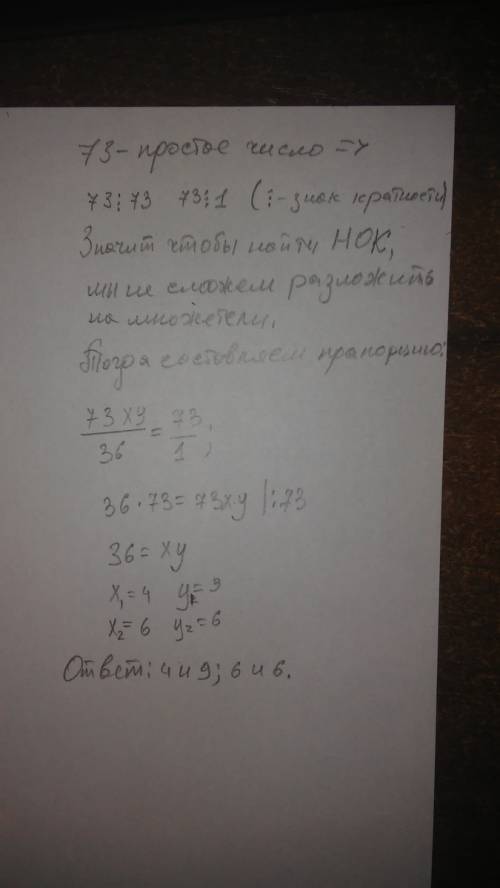 73 - простое число =>
73⋮73 73⋮1 (⋮ - знак кратности)
Значит чтобы найти НОК,
мы не сможем разложить
на множетели.
Тогда составляем прапорцию:
73xy/36 = 73/1;
36·73 = 73x·y |:73
36 = xy
x₁ = 4 y₁ = 9
x₂ = 6 y₂ = 6
Ответ: 4 и 9; 6 и 6.